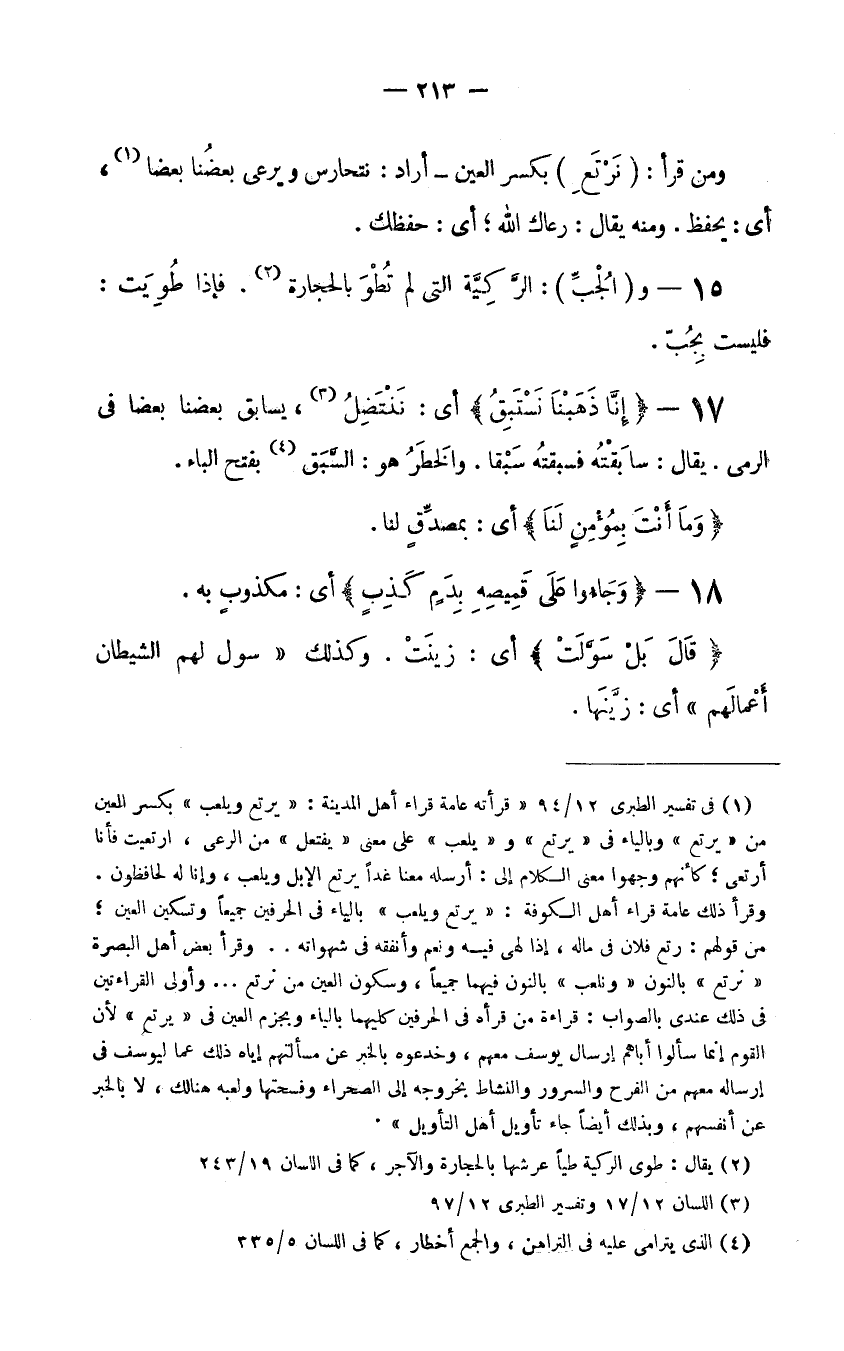 — ٢١٣ —
ومن قرأ : ( نَرْتَعِ ) بكسر العين – أراد : نتحارس ويرعى بعضُنا بعضا (١) ،
أى : يحفظ . ومنه يقال : رعاك الله ؛ أى : حفظك .
١٥ — و ( الْجُبِّ ) : الرَّكِيَّة التى لم تُطْوَ بالحجارة (٢) . فإذا طُوِيَت :
فليست بِجُبّ .
١٧ — ﴿ إِنَّا ذَهَبْنَا نَسْتَبِقُ ﴾ أى : نَنْتَضِلُ (٣) ، يسابق بعضنا بعضا فى
الرمى . يقال : سابَقْتُه فسبقتهُ سَبْقا . والخَطَرُ هو : السَّبَق (٤) بفتح الباء .
﴿ وَمَا أَنْتَ بِمُؤْمِنٍ لَنَا ﴾ أى : بمصدِّقٍ لنا .
١٨ — ﴿ وَجَاءُوا عَلَى قَمِيصِهِ بِدَمٍ كَذِبٍ ﴾ أى : مكذوبٍ به .
﴿ قَالَ بَلْ سَوَّلَتْ ﴾ أى : زينَتْ . وكذلك « سول لهم الشيطان
أَعْمالَهم » أى : زيَّنَها .
(١) فى تفسير الطبرى ٩٤/١٢ « قرأته عامة قراء أهل المدينة : « يرتع ويلعب » بكسر العين
من « يرتع » وبالياء فى « يرتع » و « يلعب » على معنى « يفتعل » من الرعى ، ارتعيت فأنا
أرتعى ؛ كأنهم وجهوا معنى الكلام إلى : أرسله معنا غداً يرتع الإبل ويلعب ، وإنا له لحافظون .
وقرأ ذلك عامة قراء أهل الكوفة : « يرتع ويلعب » بالياء فى الحرفين جميعاً وتسكين العين ؛
من قولهم : رتع فلان فى ماله ، إذا لهى فيه ونعم وأنفقه فى شهواته . . وقرأ بعض أهل البصرة
« نرتع » بالنون « ونلعب » بالنون فيهما جميعاً ، وسكون العين من نرتع ... وأولى القراءتين
فى ذلك عندى بالصواب : قراءة من قرأه فى الحرفين كليهما بالياء وبجزم العين فى « يرتع » لأن
القوم إنما سألوا أباهم إرسال يوسف معهم ، وخدعوه بالخبر عن مسألتهم إياه ذلك عما ليوسف فى
إرساله معهم من الفرح والسرور والنشاط بخروجه إلى الصحراء وفسحتها ولعبه هنالك ، لا بالخبر
عن أنفسهم ، وبذلك أيضاً جاء تأويل أهل التأويل » .
(٢) يقال : طوى الركية طياً عرشها بالحجارة والآجر ، كما فى اللسان ٢٤٣/١٩
(٣) اللسان ١٧/١٢ وتفسير الطبرى ٩٧/١٢
(٤) الذى يترامى عليه فى التراهن ، والجمع أخطار ، كما فى اللسان ٣٣٥/٥